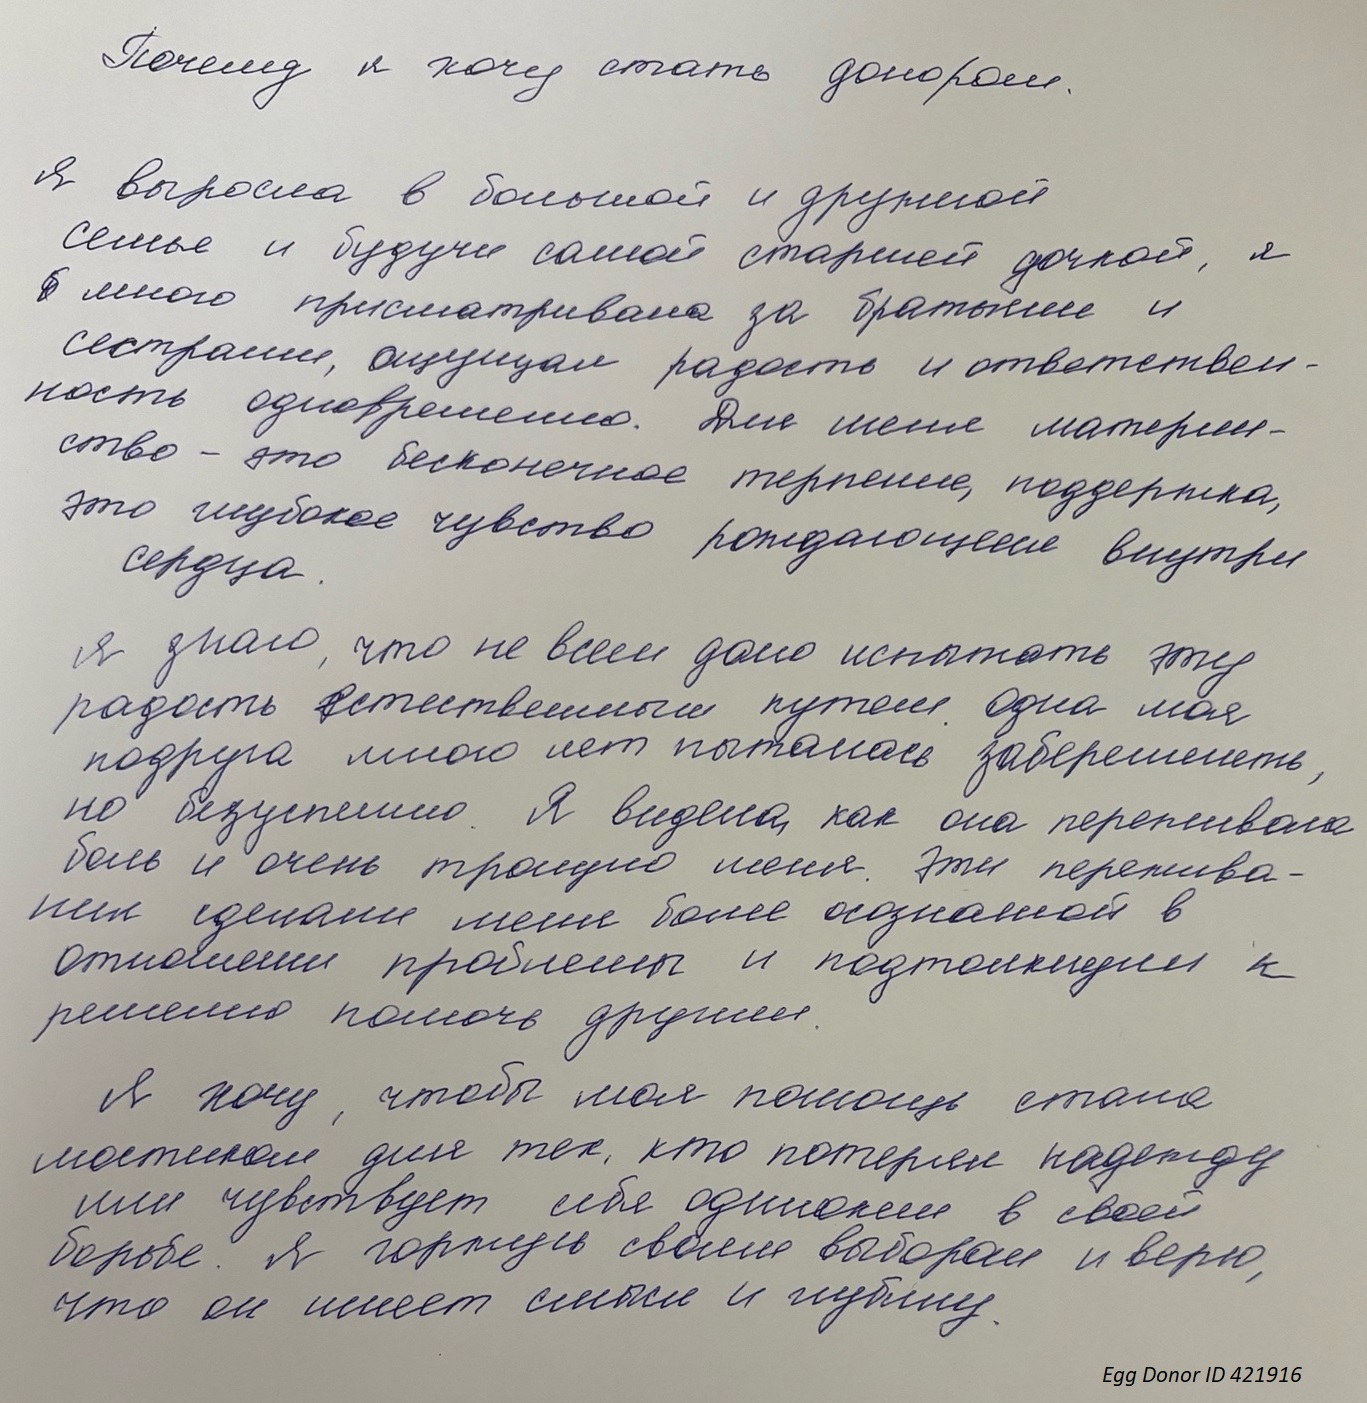 Почему я хочу стать донором.
Я выросла в большой и дружной
семье и будучи самой старшей дочкой, я
много присматривала за братьями и
сестрами, ощущая радость и ответствен-
ность одновременно. Для меня материн-
ство - это бесконечное терпение, поддержка,
это глубокое чувство рождающееся внутри
сердца.
Я знаю, что не всем дано испытать эту
радость естественным путем. Одна моя
подруга много лет пыталась забеременеть,
но безуспешно. Я видела, как она переживала
боль и очень тронуло меня. Эти пережива-
ния сделали меня более осознанной в
отношении проблемы и подтолкнули к
решению помочь другим.
Я хочу, чтобы моя помощь стала
мостиком для тех, кто потерял надежду
или чувствует себя одиноким в своей
борьбе. Я горжусь своим выбором и верю,
что он имеет смысл и глубину.
Egg Donor ID 421916